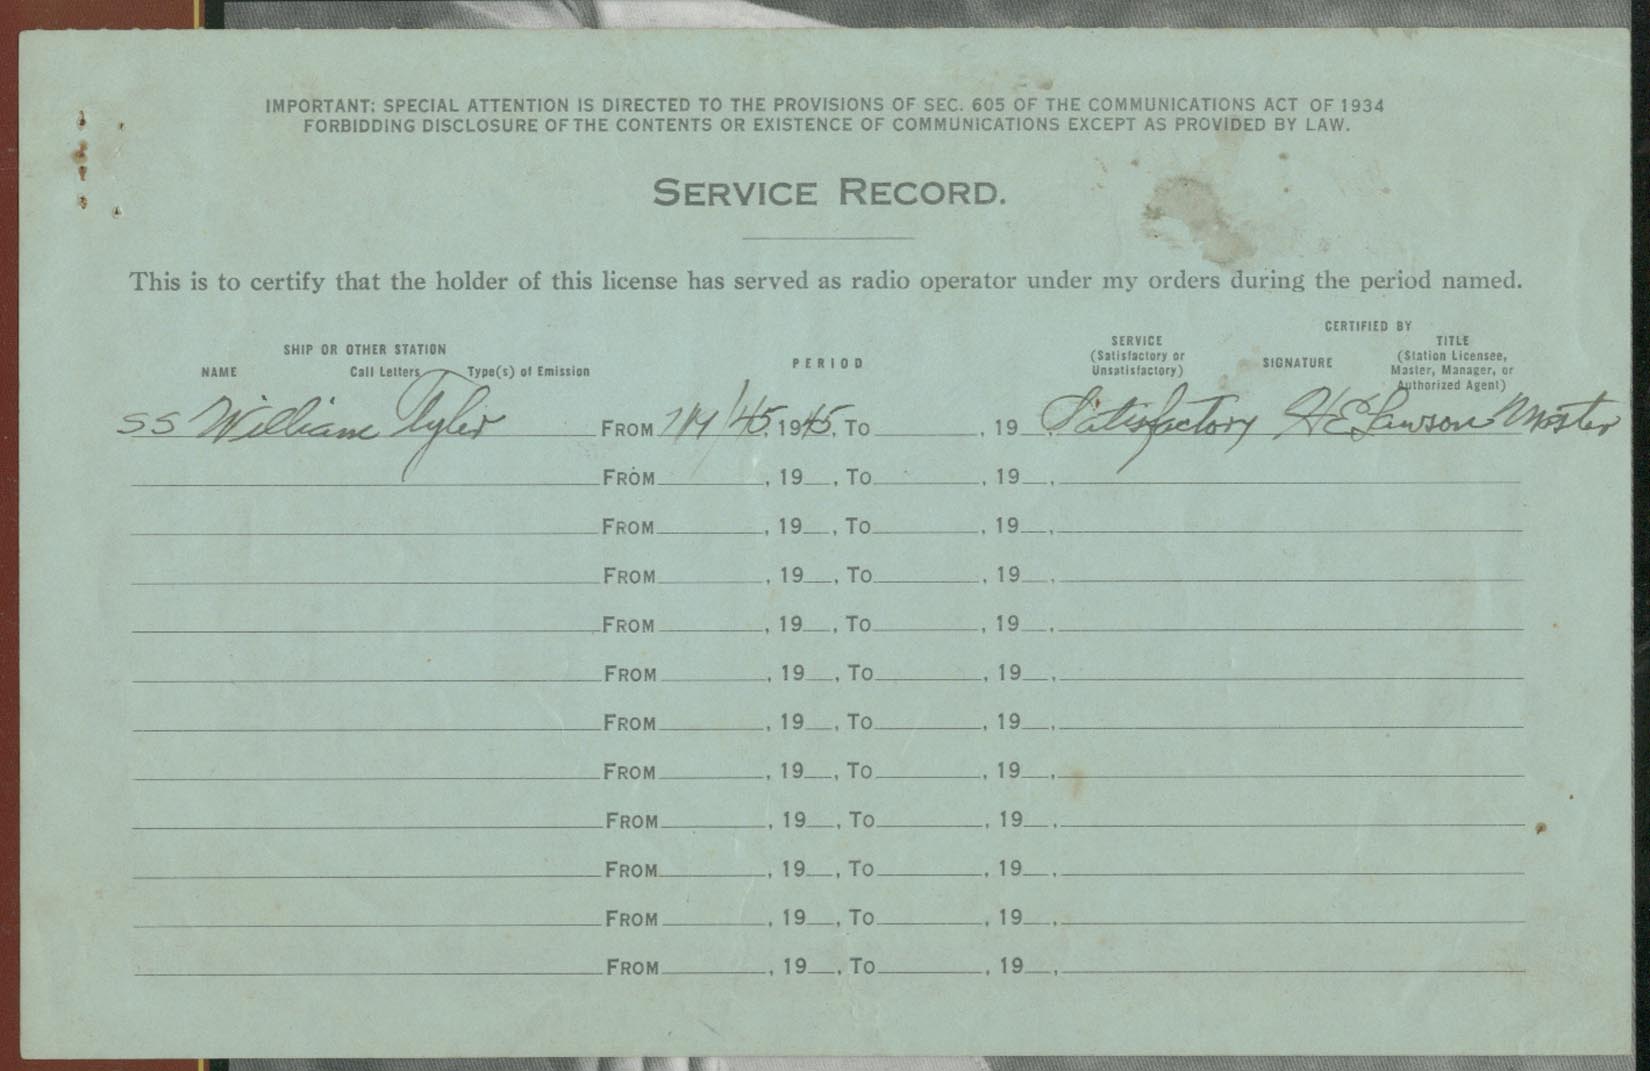 IMPORTANT: SPECIAL ATTENTION IS DIRECTED TO THE PROVISIONS OF SEC. 605 OF THE COMMUNICATIONS ACT OF 1934
FORBIDDING DISCLOSURE OF THE CONTENTS OR EXISTENCE OF COMMUNICATIONS EXCEPT AS PROVIDED BY LAW.
SERVICE RECORD.
This is to certify that the holder of this license has served as radio operator under my orders during the period named.
SHIP OR OTHER STATION
NAME Call Letters Type(s) of Emission
PERIOD
SERVICE
(Satisfactory or
Unsatisfactory)
CERTIFIED BY
SIGNATURE
TITLE
(Station Licensee,
Master, Manager, or
Authorized Agent)
SS William Tyler FROM /45, 1945, TO , 19 , Satisfactory H E Lawson Master
FROM , 19 , TO , 19 ,
FROM , 19 , TO , 19 ,
FROM , 19 , TO , 19 ,
FROM , 19 , TO , 19 ,
FROM , 19 , TO , 19 ,
FROM , 19 , TO , 19 ,
FROM , 19 , TO , 19 ,
FROM , 19 , TO , 19 ,
FROM , 19 , TO , 19 ,
FROM , 19 , TO , 19 ,
FROM , 19 , TO , 19 ,